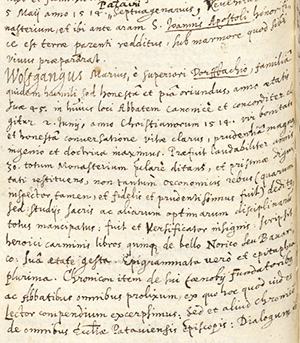 Patavii
5 Maij anno 1514. Septuagenarius,
nasterium, et ibi ante aram S. Joannis Apostoli honori
ce est terræ parenti redditus: sub marmore quod sibi
vivus præparârat.
Wolfgangus Marius, è superiori Dorffbachio, familiâ
quidem humili sed honesta et pia oriundus, anno ætatis
suæ 45. in huius loci Abbatem canonicè et concorditer eli
gitur 2. Junij, anno Christianorum 1514. vir bonitate
et honesta conversatione vitæ clarus, prudentiâ magna
ingenio et doctrina maximus. Præfuit laudabiliter annis
30. totum monasterium pulcrè ditans, et
tati restituens, non tantum œconomicus rebus (quarum
inspector tamen, et fidelis et prudentissimus fuit) deditus
sed studijs sacris ac aliarum optimarum disciplinarum
totus mancipatus: fuit et Versificator insignis: scripsit
heroici carminis libros quinque de bello Norico seu Bavari
co. Suâ ætate gesto. Epigrammata verò et epitaphia
plurima. Chronicon item de huius Cœnobij fundatoribus
ac Abbatibus omnibus prolixum, ex quo hoc quod vides
Lector compendium excerpsimus: Sed et aliud chronicon
de omnibus Ecclæ Pataviensis Episcopis: Dialogum